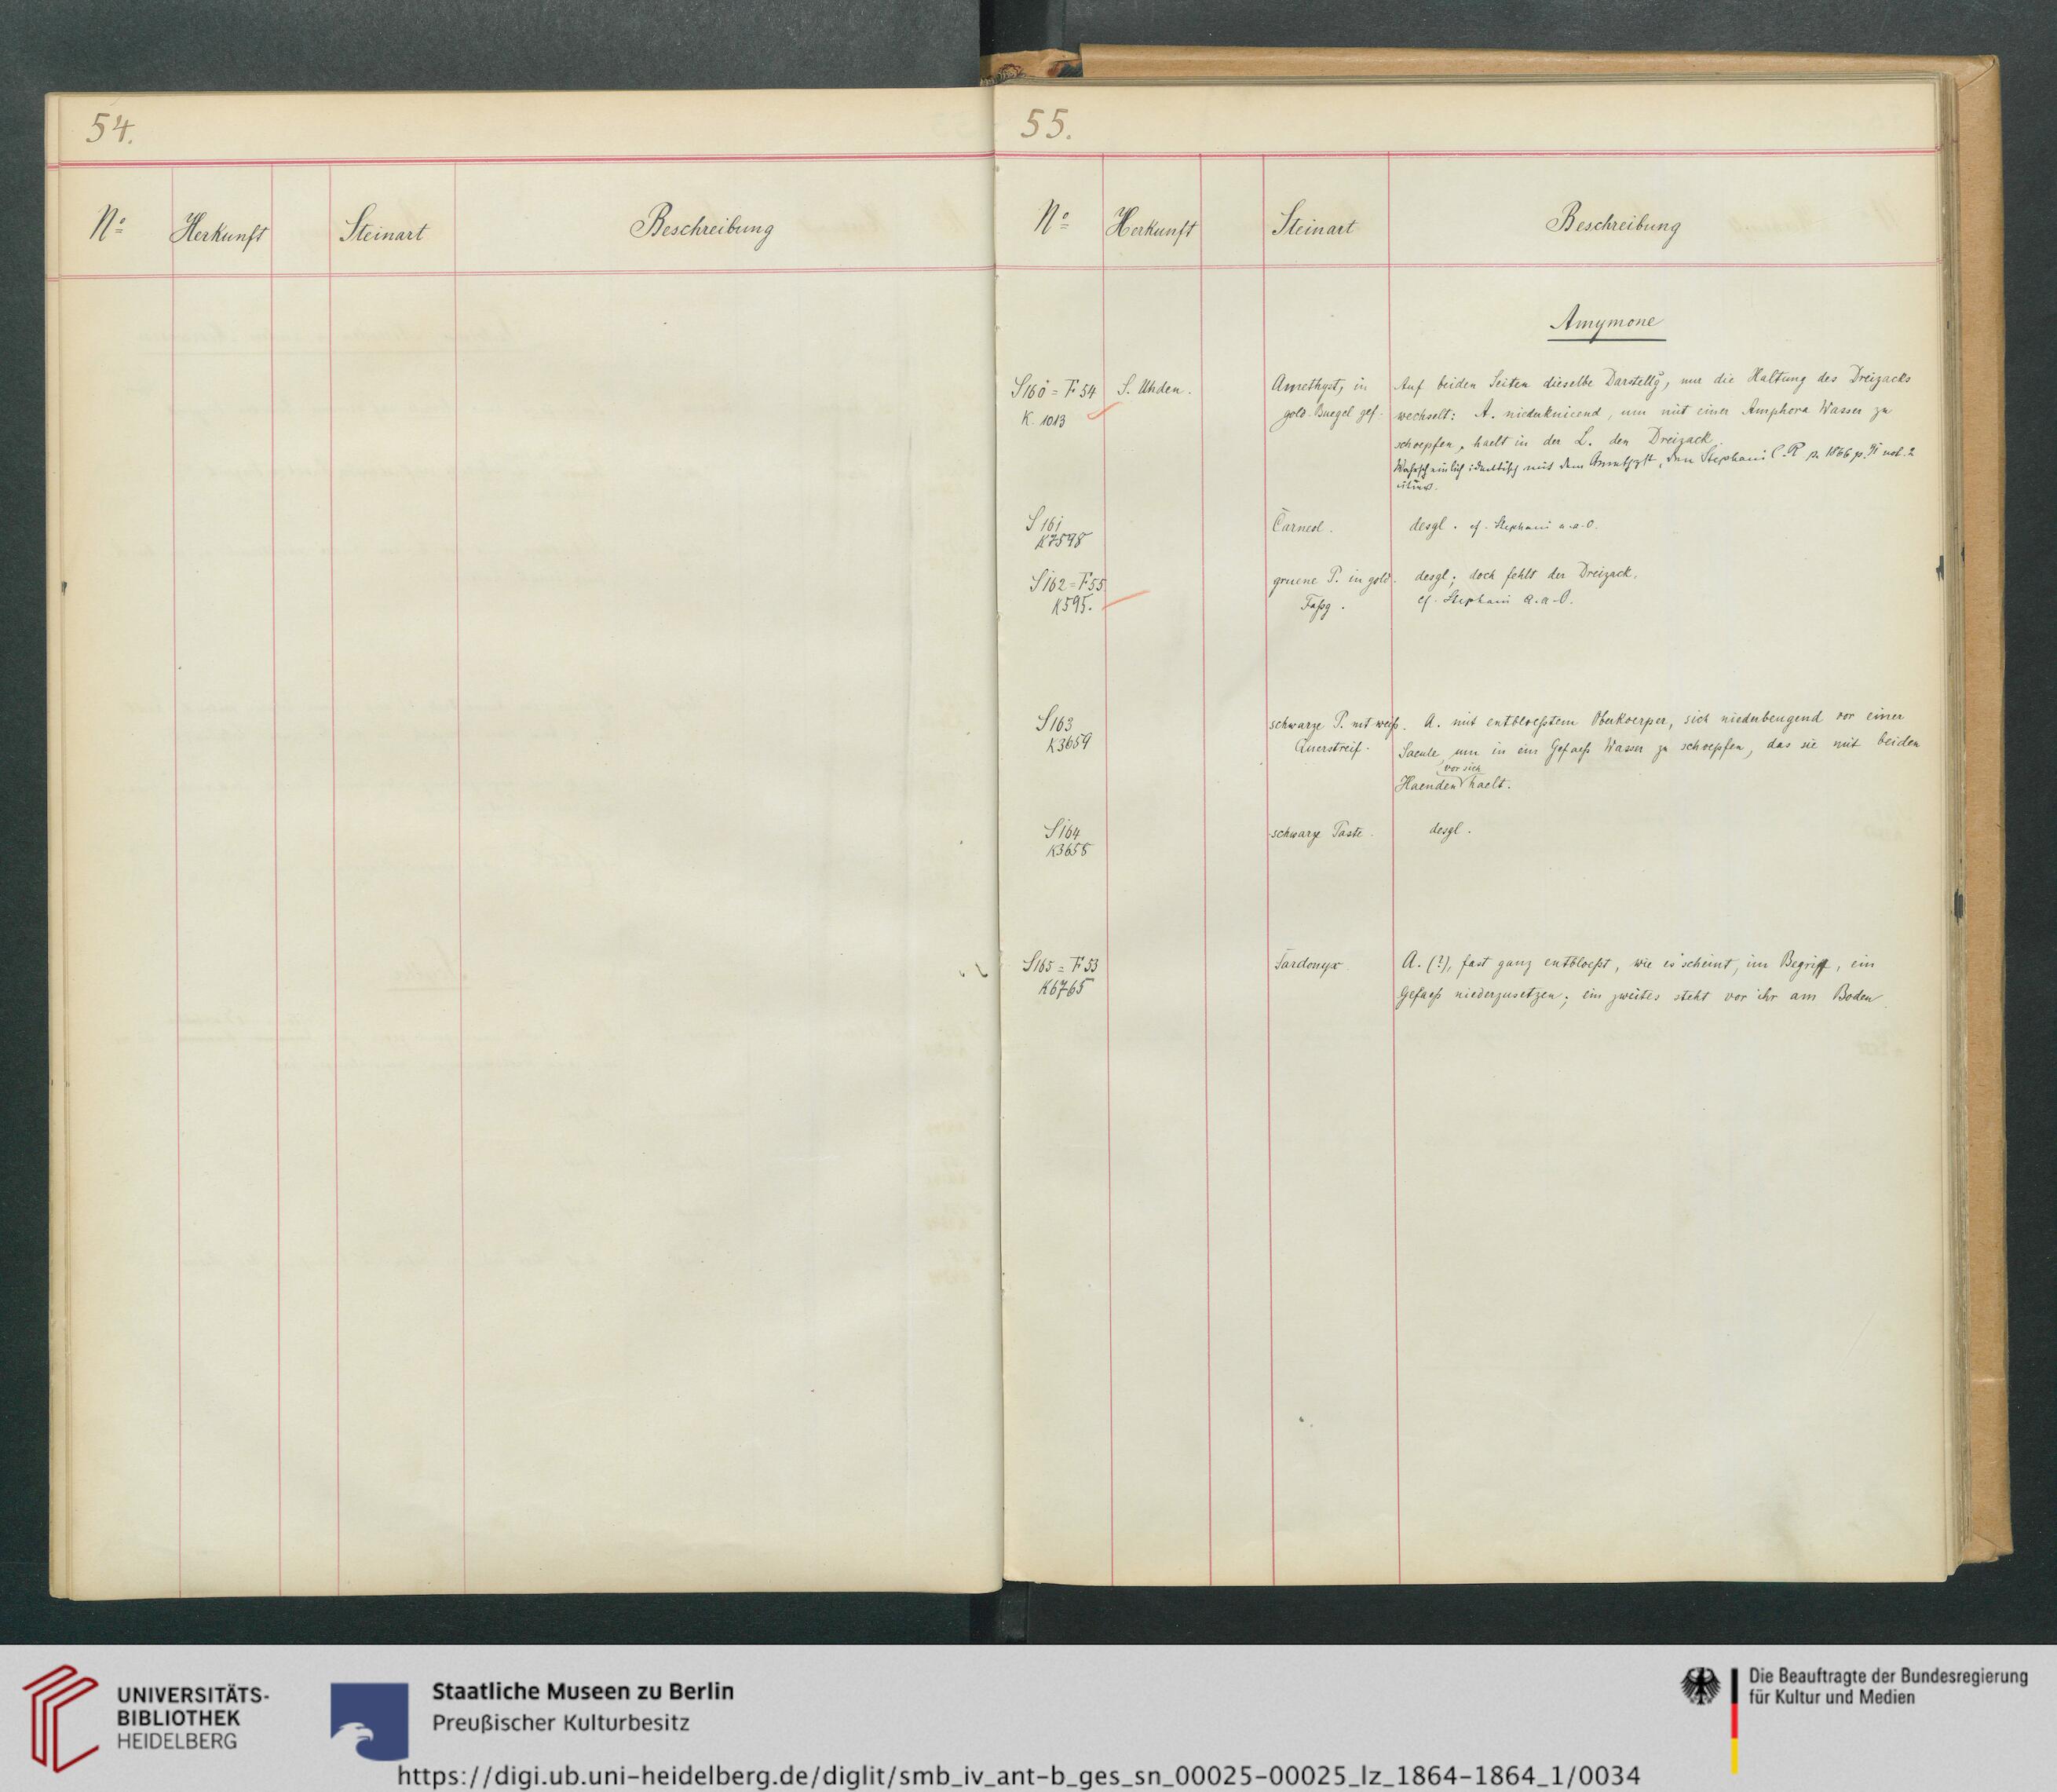 54.
Nº Herkunft Steinart Beschreibung
55.
Nº Herkunft Steinart Beschreibung
Amymone
S160 = F54 S. Uhden. Amethyst, in Auf beiden Seiten dieselbe Darstellg, nur die Haltung des Dreizacks
K. 1013 gold. Buegel gef. wechselt: A. niederknieend, um mit einer Amphora Wasser zu
schoepfen, haelt in der L. den Dreizack.
Wahrscheinlich identisch mit dem Amethyst, den Stephani C.R. 1866 p. not. 2
citirt.
S161 Carneol. desgl. cf. Stephani a.a.O.
K7598
S162 = F55 gruene P. in gold. desgl; doch fehlt der Dreizack.
K595. Faßg. cf. Stephani a.a.O.
S163 schwarze P. mt weiß. A. mit entbloeßtem Oberkoerper, sich niederbeugend vor einer
K3659 Querstreif. Saeule, um in ein Gefaeß Wasser zu schoepfen, das sie mit beiden
vor sich
Haenden haelt.
S164 schwarze Paste. desgl.
K3658
S165 = F53 Sardonyx A. (?), fast ganz entbloeßt, wie es scheint, im Begriff, ein
K6765 Gefaeß niederzusetzen; ein zweites steht vor ihr am Boden.
UNIVERSITÄTS-
BIBLIOTHEK
HEIDELBERG
Staatliche Museen zu Berlin
Preußischer Kulturbesitz
Die Beauftragte der Bundesregierung
für Kultur und Medien
https://digi.ub.uni-heidelberg.de/diglit/smb_iv_ant-b_ges_sn_00025-00025_lz_1864-1864_1/0034